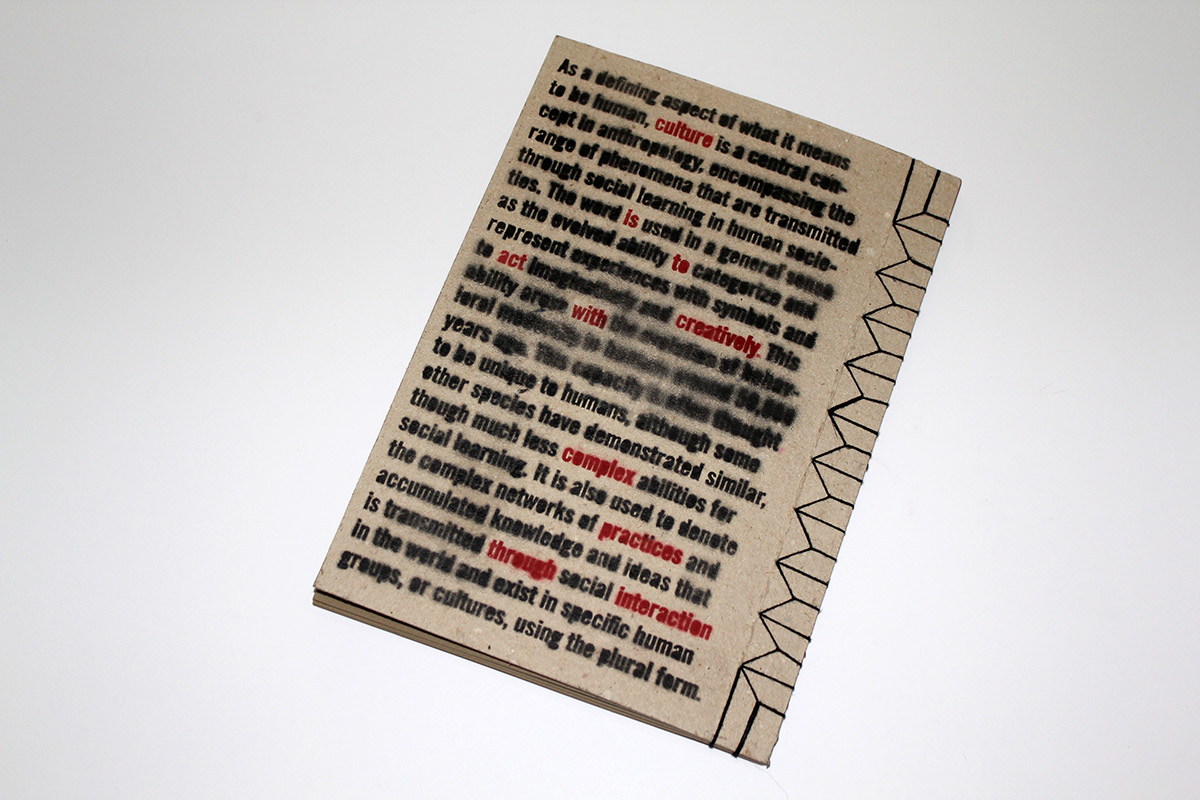 As a defining aspect of what it means
to be human, culture is a central con-
cept in anthropology, encompassing the
range of phenomena that are transmitted
through social learning in human socie-
ties. The word is used in a general sense
as the evolved ability to categorize and
represent experiences with symbols and
to act imaginatively and creatively. This
ability arose with the evolution of behav-
ioral modernity in humans around 50,000
years ago. This capacity is often thought
to be unique to humans, although some
other species have demonstrated similar,
though much less complex abilities for
social learning. It is also used to denote
the complex networks of practices and
accumulated knowledge and ideas that
is transmitted through social interaction
in the world and exist in specific human
groups, or cultures, using the plural form.